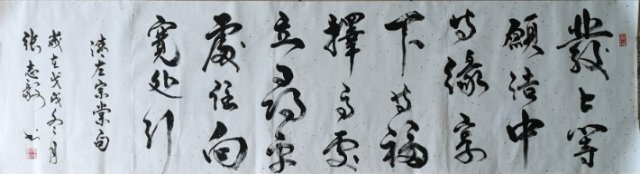 發上等
願结中
等緣享
下等福
擇高處
立尋平
處住向
寬处行
左宗棠句
歲在戊戌冬月
张志 书